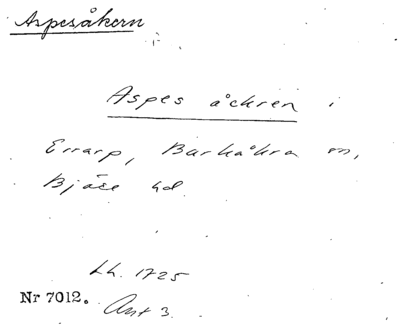 Aspesåkern
Aspes åckren i
Errarp, Barkåkra sn,
Bjäre hd
Lh. 1725
Nr 7012.
Ant 3.